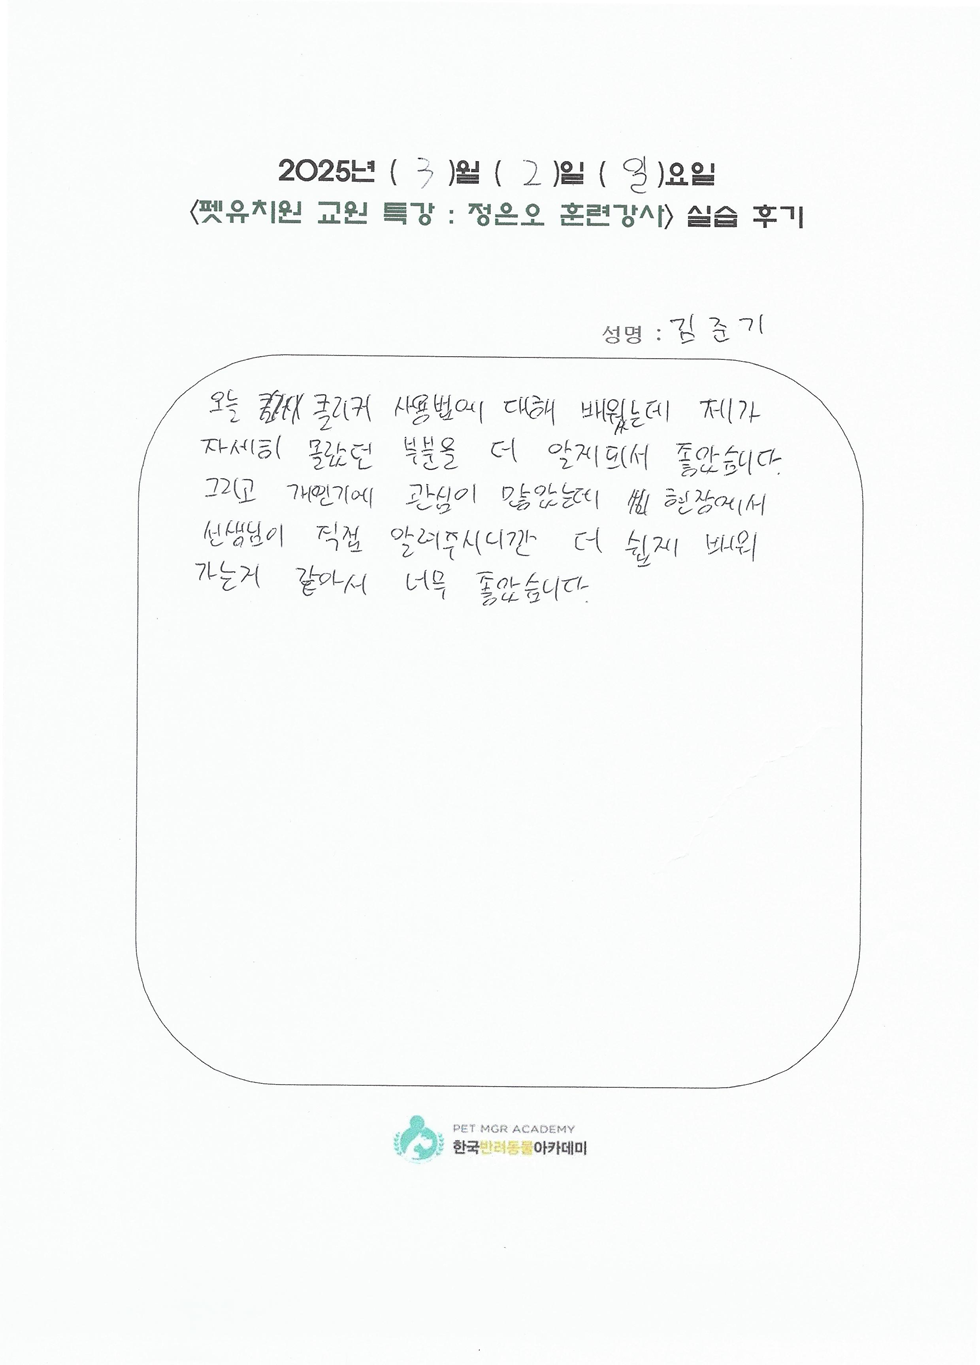 2025년 ( 3 )월 ( 2 )일 ( 일 )요일
<펫유치원 교원 특강 : 정은오 훈련강사> 실습 후기
성명 : 김준기
오늘 클리커 사용법에 대해 배웠는데 제가
자세히 몰랐던 부분을 더 알게되서 좋았습니다.
그리고 개인기에 관심이 많았는데 현장에서
선생님이 직접 알려주시니깐 더 쉽게 배워
가는거 같아서 너무 좋았습니다.
PET MGR ACADEMY
한국반려동물아카데미